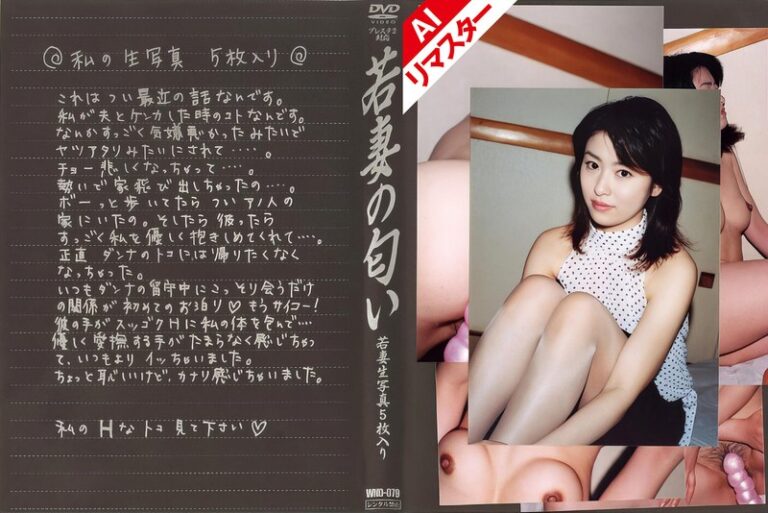 @ 私の生写真 5枚入り @
これはつい最近の話なんです。
私が夫とケンカした時のコトなんです。
なんかすっごく気嫌悪かったみたいで
ヤツアタリみたいにされて・・・・・。
チョー悲しくなっちゃって・・・・。
勢いで家飛び出しちゃったの・・・。
ボーっと歩いてたらついアノ人の
家にいたの。そしたら彼ったら
すっごく私を優しく抱きしめてくれて・・・・。
正直 ダンナのトコには帰りたくなく
なっちゃった。
いつもダンナの留守中にこっそり会うだけ
の関係が初めてのお泊り♡もうサイコー!
彼の手がスッゴクHに私の体を包んで・・・・
優しく愛撫する手がたまらなく感じちゃっ
て、いつもより イッちゃいました。
ちょっと恥しいけど、カナリ感じちゃいました。
私の Hなトコ 見て下さい♡
DVD
VIDEO
プレステ2
対応
若妻の匂い
若妻生写真5枚入り
WND-079
レンタル禁止
AI
リマスター